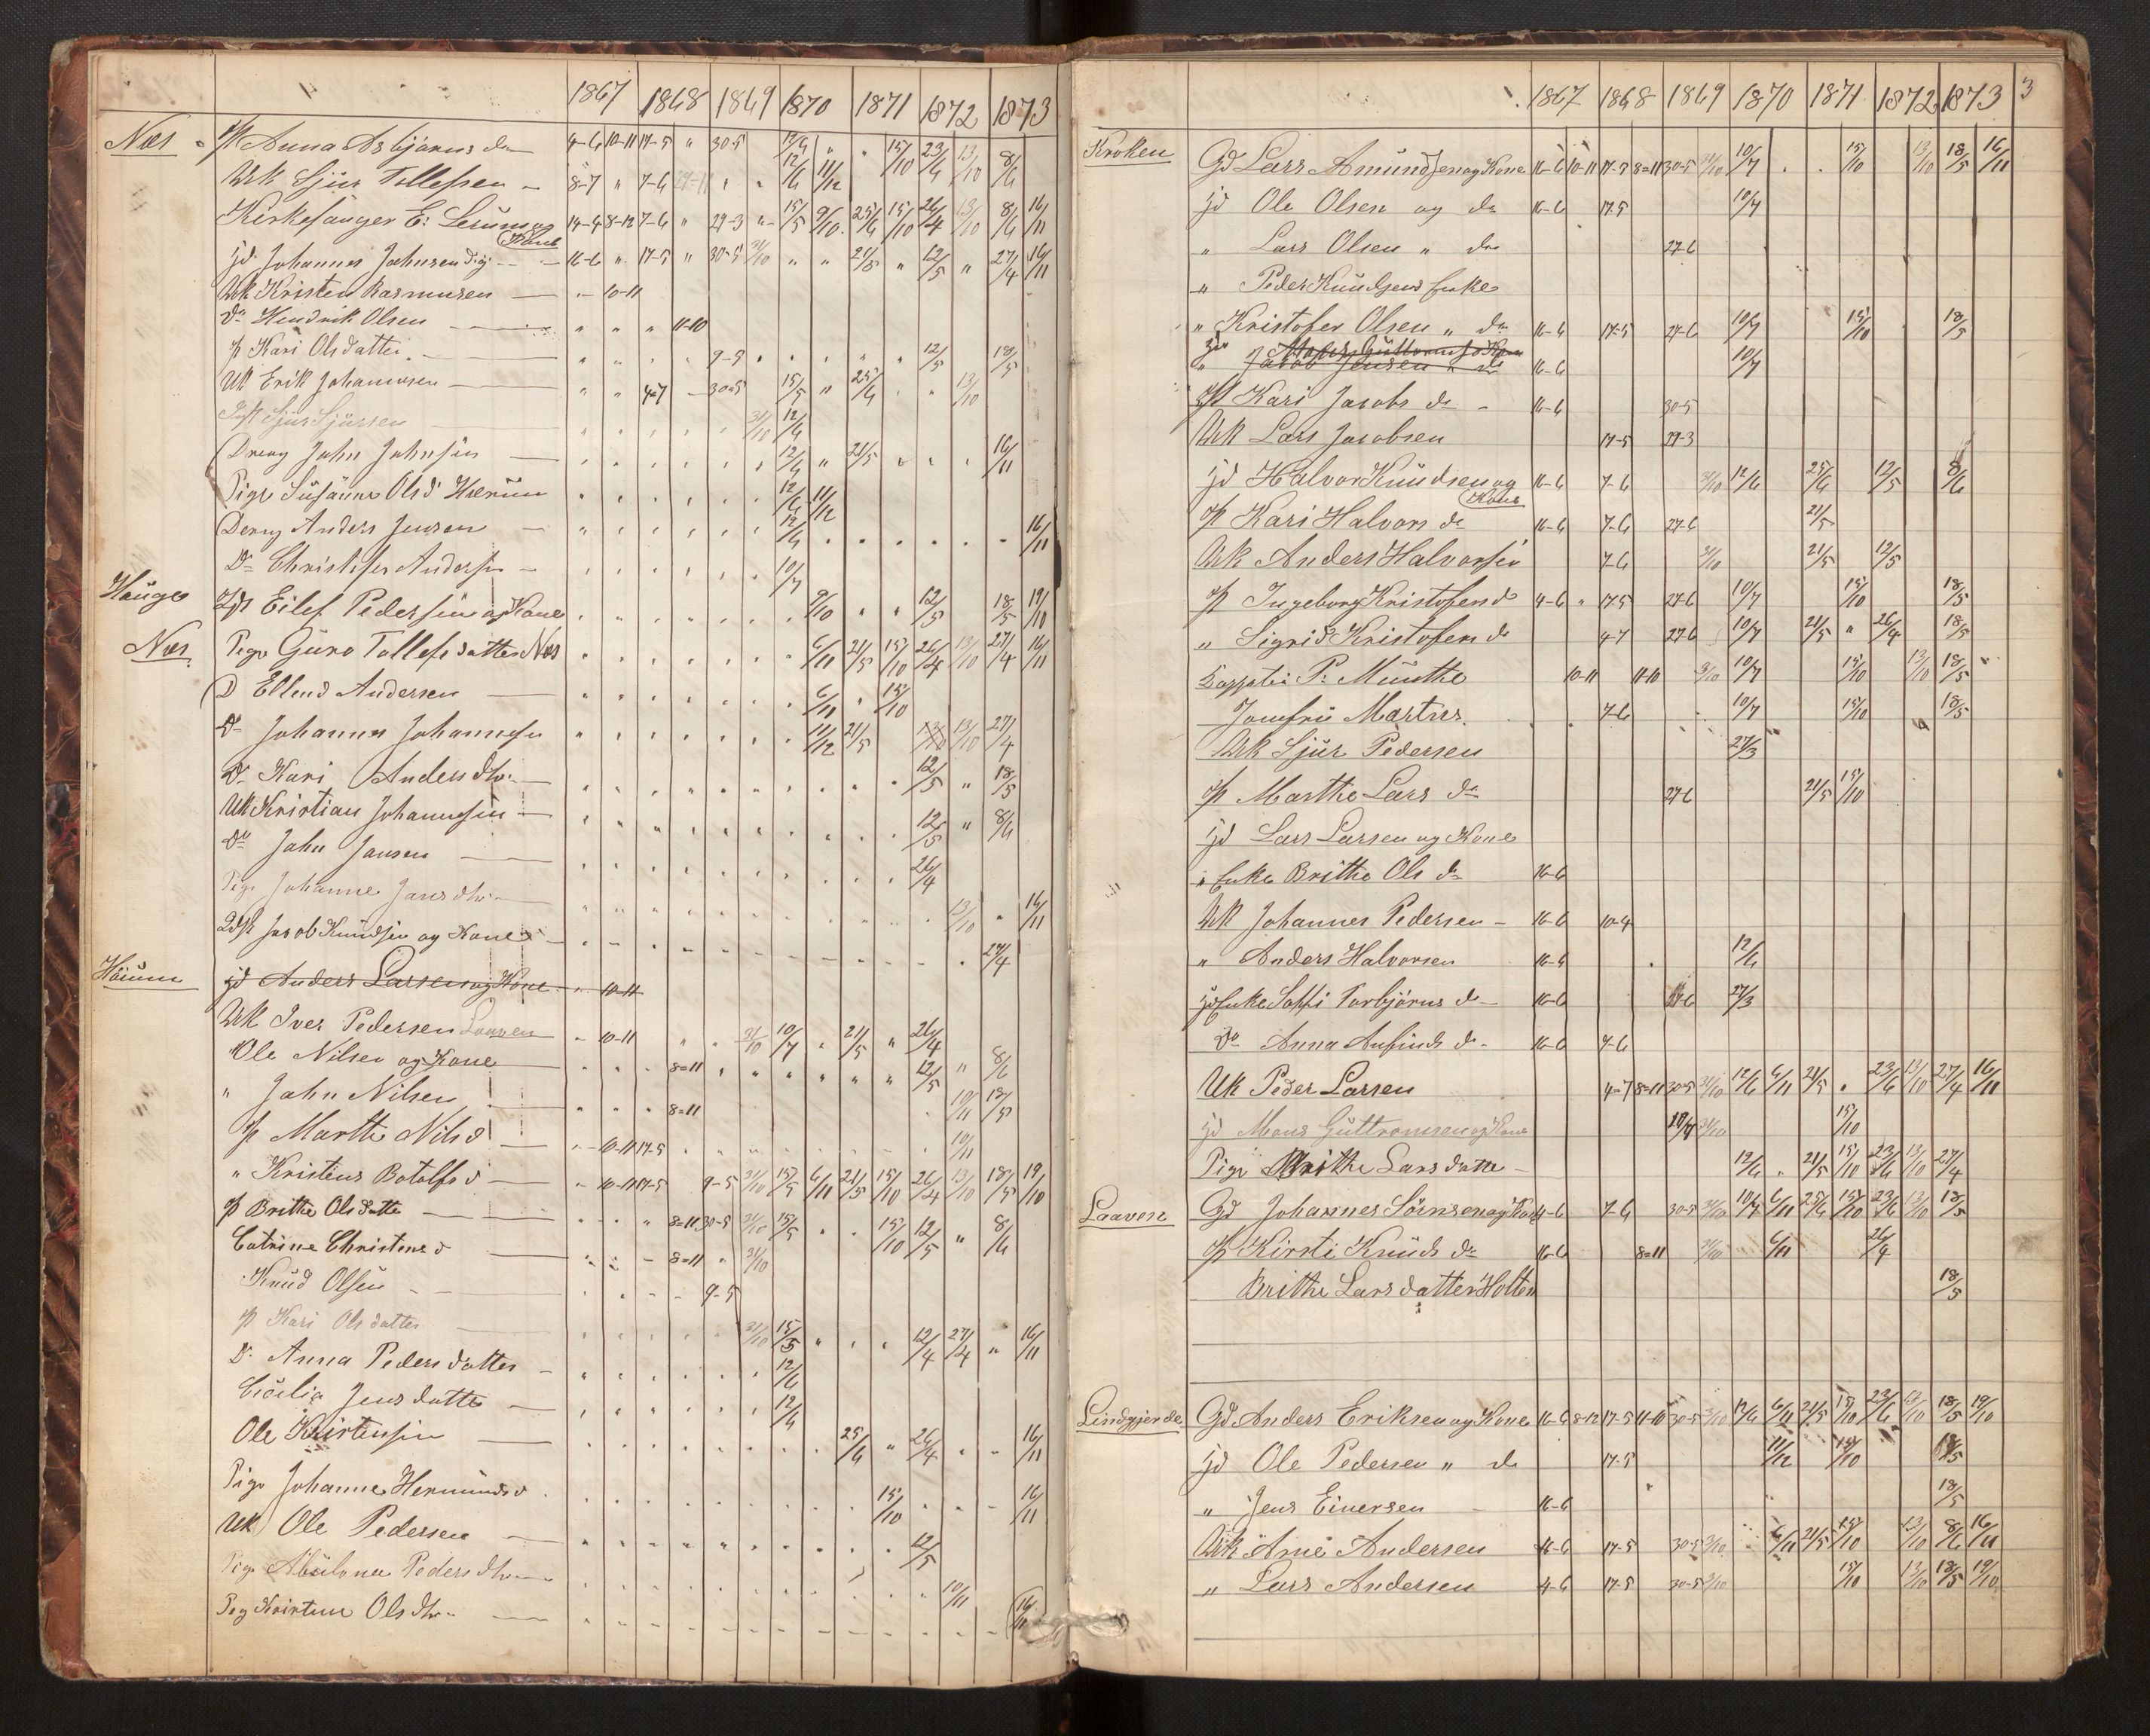 1867 1868 1869 1870 1871 1872 1873
Næs P Anna Asbjørns da 4-6 10-11 17-5 " 30-5 12/6 " " 15/10 23/6 13/10 8/6
Uk Sjur Tollefsen 8-7 " 7-6 " " 12/6 11/12
Kirkesanger E: Lerum og Kone 14-4 8-12 7-6 " 29-3 " 15/5 9/10 25/6 15/10 26/4 13/10 8/6 16/11
jd. Johannes Johnsen 16-6 " 17-5 " 30-5 31/10 " " 21/5 " 12/5 " 27/4 16/11
Uk Kristen Rasmusen " 10-11
Do Hendrik Olsen " " " 11-10
P Kari Olsdatter 9-5 12/5 18/5
Uk Erik Johannesen " " 4-7 30-5 15/5 " 25/6 13/10
Sjur Sjursen 31/10 12/6
Dreng John Johnsen 12/6 " 21/5 16/11
Pige Susanne Olsd Hærum 12/6 11/12
Dreng Anders Jensen 12/6 16/11
Do Christofer Andersen 10/7
Hauge Eilef Pedersen og Kone 9/10 12/5 18/5 19/10
Næs Pige Guro Tollefsdatter Næs 6/11 21/5 15/10 26/4 13/10 27/4 16/11
D Ellend Andersen 6/11 15/10
Do Johannes Johannesen 11/12 21/5 13/10 13/10 27/4
Do Kari Andersdtr. 12/5 " 18/5
Uk Kristian Johannesen 12/5 " 8/6
Do John Jansen 26/4
Pige Johanne Jansdtr. 13/10 16/11
Jacob Knudsen og Kone 27/4
Høium jd Anders Larsen og Kone 10-11
Uk Iver Pedersen Laaven 10-11 31/10 10/7 21/5 " 26/4
Ole Nilsen og Kone 8-11 12/5 " 8/6
" John Nilsen 8-11 10/11 18/5
P Marthe Nilsd 10-11 17-5 10/11
" Kristens Botolfsd 10-11 17-5 9-5 31/10 15/5 6/11 21/5 15/10 26/4 13/10 18/5 19/10
P Brithe Olsdatter 8-11 30-5 31/10 15/5 15/10 12/5 " 8/6
Catrine Christensd 8-11 " 31/10
Knud Olsen 9-5
P Kari Olsdatter 31/10 15/5 12/4 27/4 " 16/11
Do Anna Pedersdatter 12/6
Cicilia Jensdatter 12/6
Ole Kristensen 25/6 " 26/4 16/11
Pige Johanne Hermundsd 15/10 16/11
Uk Ole Pedersen 12/5
Pige Abelone Pedersdtr 10/11
Pig Kristine Olsdtr 16/11
1867 1868 1869 1870 1871 1872 1873 3
Kroken Gd Lars Amundsen og Kone 16-6 10-11 17-5 8-11 30-5 31/10 10/7 15/10 13/10 18/5 16/11
jd Ole Olsen og do 16-6 17-5 10/7
" Lars Olsen " do 27-6
" Peder Knudsens Enke
" Kristofer Olsen " do 16-6 17-5 27-6 10/7 15/10 18/5
" Jacob Jensen " do 16-6 10/7
P Kari Jacobs da 16-6 30-5
Uk Lars Jacobsen 17-5 29-3
jd Halvor Knudsen og Kone 16-6 7-6 31/10 12/6 25/6 12/5 8/6
P Kari Halvors da 16-6 7-6 27-6 21/5
Uk Anders Halvorsen 7-6 31/10 21/5 12/5
P Ingeborg Kristofersd 4-6 " 17-5 27-6 10/7 15/10 18/5
" Sigrid Kristofersd 4-7 27-6 10/7 21/5 " 26/4 18/5
P. Munthe 10-11 11-10 31/10 10/7 15/10 13/10 18/5
Jomfru Martres. 7-6 10/7 15/10 18/5
Uk Sjur Pedersen 27/3
P Marthe Lars da 27-6 21/5 15/10
jd Lars Larsen og Kone
" Enke Brithe Ols da 16-6
Uk Johannes Pedersen 16-6 10-4
" Anders Halvorsen 16-6 12/6
jd Enke Torbjørns d 16-6 27-6 27/3
Do Anna Anfinds d 16-6 7-6
Uk Peder Larsen 4-7 8-11 30-5 31/10 12/6 6/11 21/5 23/6 13/10 27/4 16/11
jd Mons Guttormsen og Kone 31/10 15/10
Pige Brithe Larsdatter 12/6 21/5 15/10 23/6 13/10 27/4
Laaven Gd Johannes Sørnsen og Kone 4-6 7-6 30-5 31/10 10/7 6/11 25/6 15/10 23/6 13/10 18/5
P Kirsti Knuds da 16-6 8-11 31/10 6/11 26/4
Brithe Larsdatter Holten 18/5
Lindgjerde Gd. Anders Eriksen og Kone 16-6 8-12 17-5 11-10 30-5 31/10 12/6 6/11 21/5 15/10 23/6 13/10 18/5 19/10
jd Ole Pedersen " do 17-5 11/12 15/10 18/5
" Jens Einersen 16-6 18/5
Uk Arne Andersen 16-6 17-5 30-5 31/10 6/11 21/5 15/10 13/10 8/6 16/11
" Lars Andersen 4-6 17-5 30-5 31/10 15/10 13/10 18/5 19/10